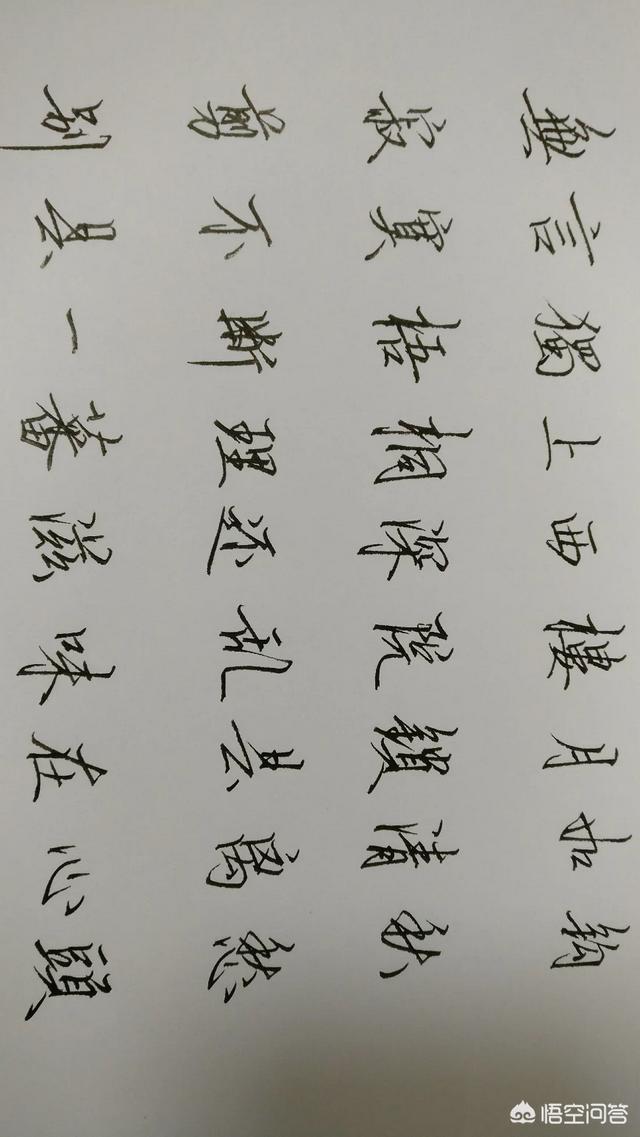 無言獨上西樓月如鉤
寂寞梧桐深院鎖清秋
剪不斷理还乱是离愁
别是一蕃滋味在心頭
悟空问答